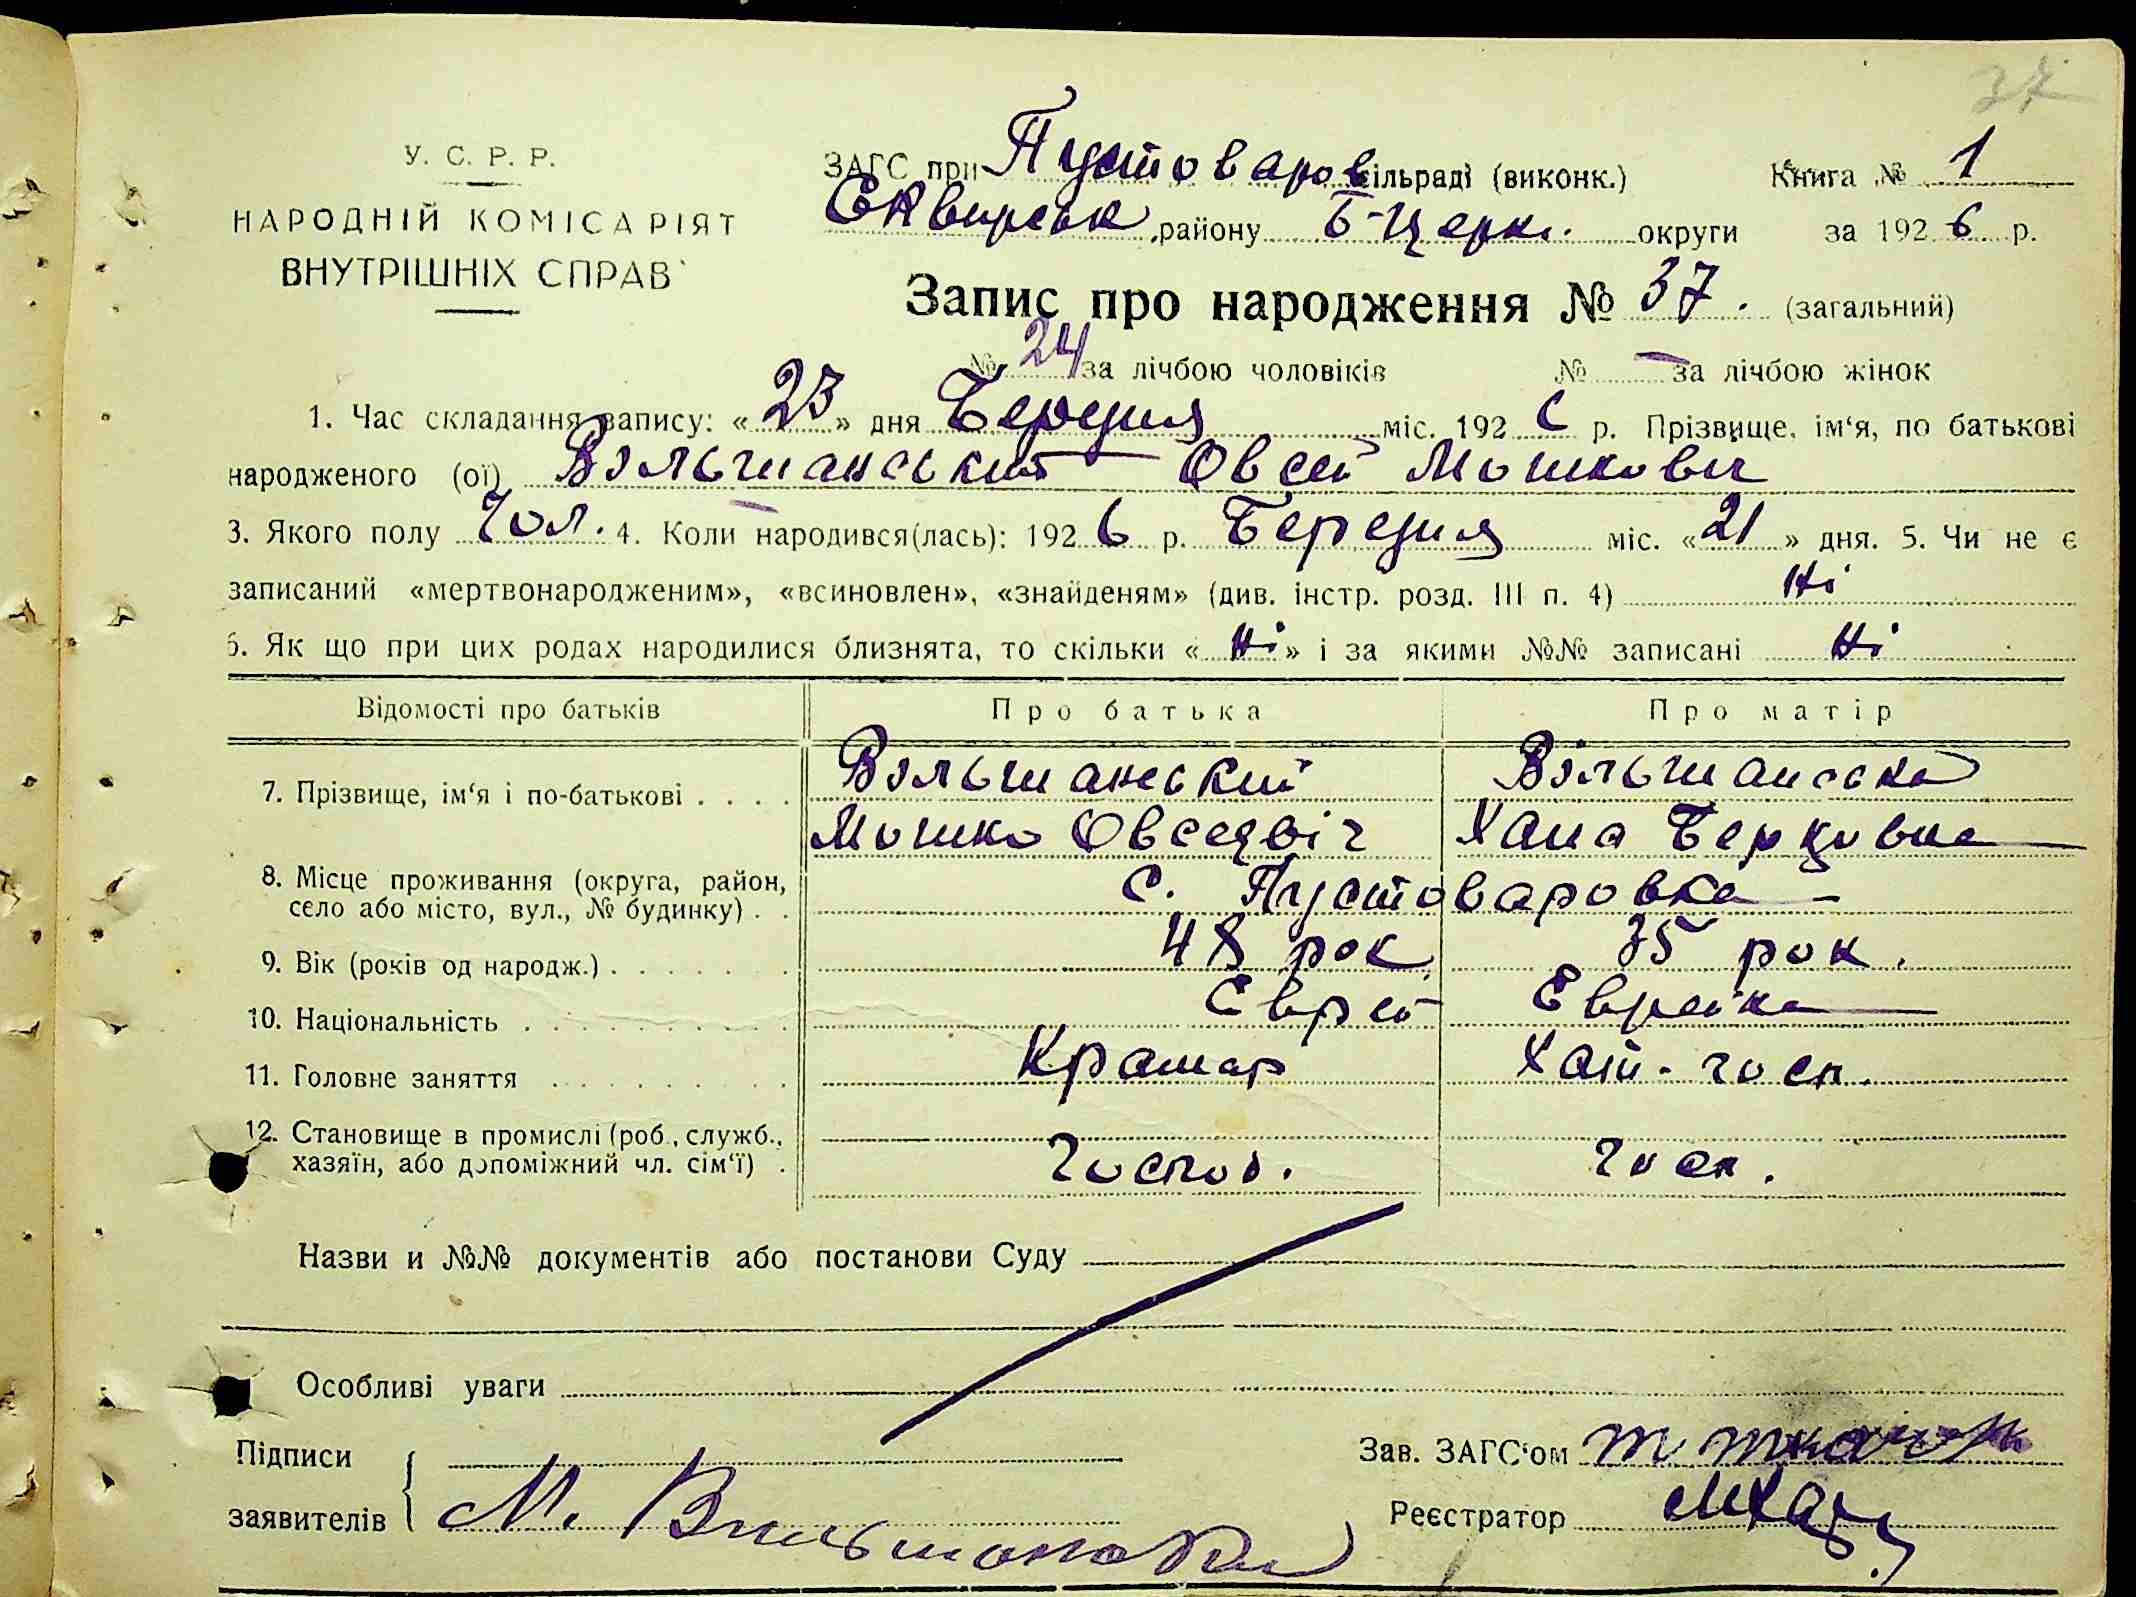 37
У. С. Р. Р.
НАРОДНІЙ КОМІСАРІЯТ
ВНУТРІШНІХ СПРАВ
ЗАГС при Пустоваров сільраді (виконк.) Книга № 1
Сквирськ району Б-Церк. округи за 1926 р.
Запис про народження № 37. (загальний)
№ 24 за лічбою чоловіків № — за лічбою жінок
1. Час складання запису: « 23 » дня Березня міс. 1926 р. Прізвище, ім‘я, по батькові
народженого (ої) Вільшанський Овсей Мошкович
3. Якого полу Чол. 4. Коли народився(лась): 1926 р. Березня міс. « 21 » дня. 5. Чи не є
записаний «мертвонародженим», «всиновлен», «знайденям» (див. інстр. розд. III п. 4) Ні
6. Як що при цих родах народилися близнята, то скільки « Ні » і за якими №№ записані Ні
Відомості про батьків Про батька Про матір
7. Прізвище, ім‘я і по-батькові . . . . Вільшанський Вільшанська
Мошко Овсеєвіч Хана Берковна
8. Місце проживання (округа, район,
село або місто, вул., № будинку) . . с. Пустоваровка
9. Вік (років од народж.) . . . . . . . 48 рок 35 рок.
10. Національність . . . . . . . . . . Єврей Єврейка
11. Головне заняття . . . . . . . . . Крамар Хат-госп.
12. Становище в промислі (роб., служб.,
хазяїн, або допоміжний чл. сім‘ї) . Господ. госп.
Назви и №№ документів або постанови Суду
Особливі уваги
Підписи
заявителів М.
Зав. ЗАГС‘ом
Реєстратор